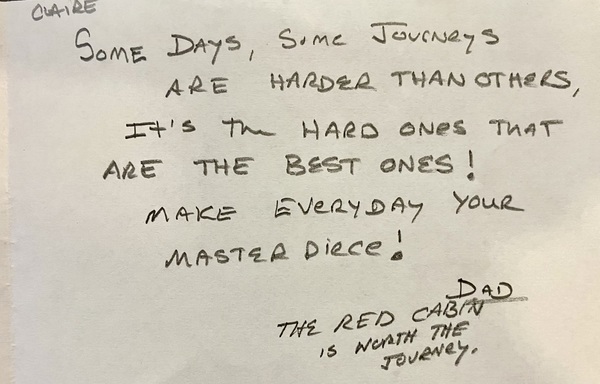 CLAIRE
SOME DAYS, SOME JOURNEYS
ARE HARDER THAN OTHERS,
IT'S THE HARD ONES THAT
ARE THE BEST ONES!
MAKE EVERYDAY YOUR
MASTER PIECE!
DAD
THE RED CABIN
IS WORTH THE
JOURNEY.